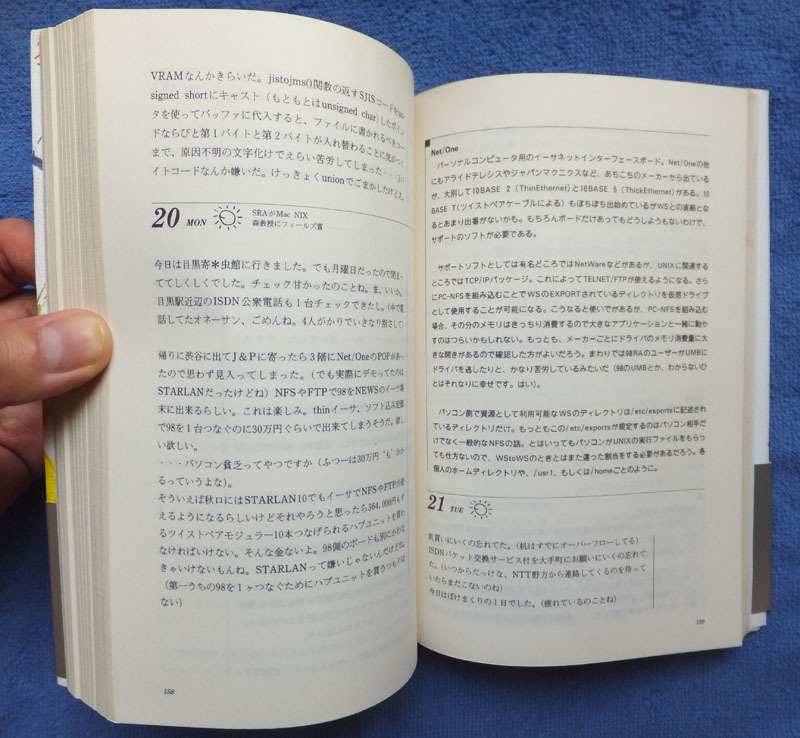 VRAMなんかきらいだ。jistojms()関数の返すSJISコードをuns
signed shortにキャスト（もともとはunsigned char）したポイン
タを使ってバッファに代入すると、ファイルに書かれるべきコー
ドならびと第1バイトと第2バイトが入れ替わることに気がつく
まで、原因不明の文字化けでえらい苦労してしまった・・・2バ
イトコードなんか嫌いだ。けっきょくunionでごまかしたけどね。
20 MON
SRAがMac NIX
森教授にフィールズ賞
今日は目黒寄＊虫館に行きました。でも月曜日だったので閉まっ
ててしくしくでした。チェック甘かったのことね。ま、いいか。
目黒駅近辺のISDN公衆電話も1台チェックできたし。（中で電
話してたオネーサン、ごめんね。4人がかりでいきなり指さして）
帰りに渋谷に出てJ＆Pに寄ったら3階にNet/OneのPOPがあ
ったので思わず見入ってしまった。（でも実際にデモってたのは
STARLANだったけどね）NFSやFTPで98をNEWSのイーサ端
末に出来るらしい。これは楽しみ。thinイーサ、ソフト込み定価
で98を1台つなぐのに30万円ぐらいで出来てしまうそうだ。欲し
い欲しい。
・・・パソコン貧乏ってやつですか（ふつーは30万円〝も〟かか
るっていうよな）。
そういえば秋口にはSTARLAN10でもイーサでNFSやFTPが使
えるようになるらしいけどそれやろうと思ったら364,000円もす
るツイストペアモジュラー10本つなげられるハブユニットを買わ
なければいけない。そんな金ないよ。98側のボードも別にかわな
きゃいけないもんね。STARLANって嫌いじゃないんだけどね。
（第一うちの98を1ヶつなぐためにハブユニットを買うつもりは
ない）
158
Net/One
パーソナルコンピュータ用のイーサネットインターフェースボード。Net/Oneの他
にもアライドテレシスやジャパンマクニクスなど、あちこちのメーカーから出ている
が、大別して10BASE 2（ThinEthernet）と10BASE 5（ThickEthernet）がある。10
BASE T（ツイストペアケーブルによる）もぼちぼち出始めているがWSとの直結とな
るとあまり出番がないかも。もちろんボードだけあってもどうしようもないわけで、
サポートのソフトが必要である。
サポートソフトとしては有名どころではNetWareなどがあるが、UNIXに関連する
ところではTCP/IPパッケージ。これによってTELNET/FTPが使えるようになる。さら
にPC-NFSを組み込むことでWSのEXPORTされているディレクトリを仮想ドライブ
として使用することが可能になる。こうなると使いでがあるが、PC-NFSを組み込む
場合、その分のメモリはきっちり消費するので大きなアプリケーションと一緒に動か
すのはつらいかもしれない。もっとも、メーカーごとにドライバのメモリ消費量に大
きな開きがあるので確認した方がよいだろう。まわりでは98RAのユーザーがUMBに
ドライバを逃したりと、かなり苦労しているみたいだ（98のUMBとか、わからないひ
とはそれなりに幸せです。はい）。
パソコン側で資源として利用可能なWSのディレクトリは/etc/exportsに記述され
ているディレクトリだけ。もっともこの/etc/exportsが規定するのはパソコン相手だ
けでなく一般的なNFSの話。とはいってもパソコンがUNIXの実行ファイルをもらっ
ても仕方ないので、WStoWSのときとはまた違った割当をする必要があるだろう。各
個人のホームディレクトリや、/usr1、もしくは/homeごとのように。
21 TUE
机買いにいくの忘れてた。（机はすでにオーバーフローしてる）
ISDNパケット交換サービス付を大手町にお願いにいくの忘れて
た。（いつからだっけな、NTT野方から連絡してくるのを待って
いたらまだこないのね）
今日はぼけまくりの1日でした。（疲れているのことね）
159